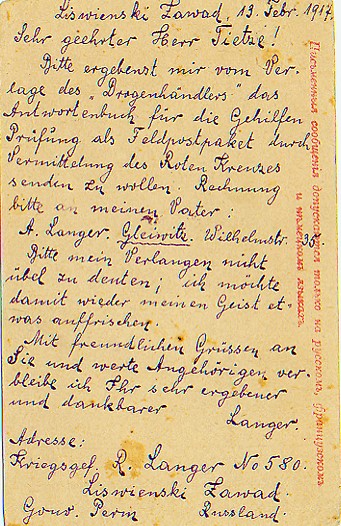 Liswienski Zawad, 13. Febr. 1917.
Sehr geehrter Herr Tietze!
Bitte ergebenst mir vom Ver-
lage des „Drogenhändlers" das
Antwortenbuch für die Gehilfen
Prüfung als Feldpostpaket durch
Vermittelung des Roten Kreuzes
senden zu wollen. Rechnung
bitte an meinen Vater:
A. Langer. Gleiwitz. Wilhelmstr.
Bitte mein Verlangen nicht
übel zu deuten; ich möchte
damit wieder meinen Geist et-
was auffrischen.
Mit freundlichen Grüssen an
Sie und werte Angehörigen ver-
bleibe ich Ihr sehr ergebener
und dankbarer
Langer.
Adresse:
Kriegsgef. R. Langer No 580.
Liswienski Zawad.
Gouv. Perm Russland.
Письменныя сообщенія допускаются только на русскомъ, французскомъ
и нѣмецкомъ языкахъ.